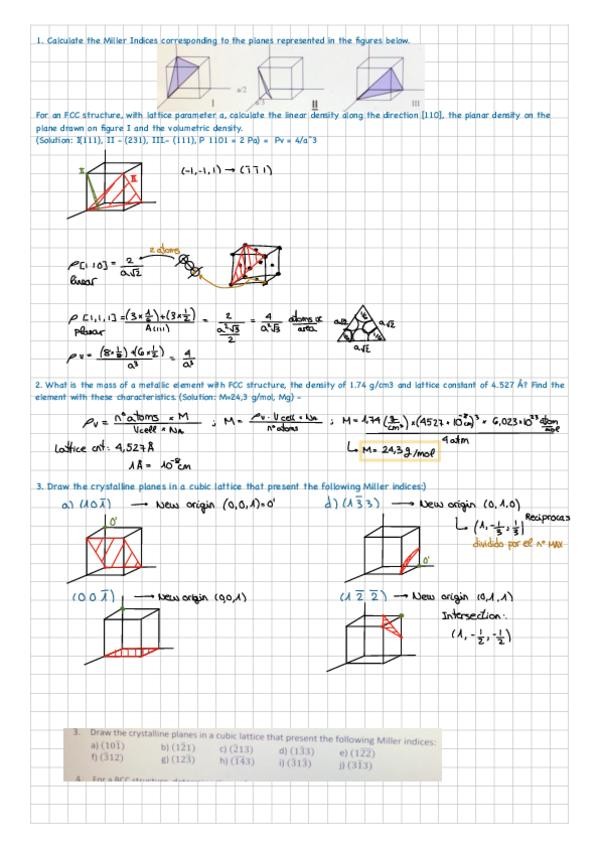 1. Calculate the Miller Indices corresponding to the planes represented in the figures below.
a/2
a/3
I
II
III
For an FCC structure, with lattice parameter a, calculate the linear density along the direction [110], the planar density on the
plane drawn on figure I and the volumetric density.
(Solution: I(111), II - (231), III- (111), P 1101 = 2 Pa) = Pv = 4/a^3
I
II
(-1,-1,1) → (1̄ 1̄ 1)
ρ[110] = 2 / a√2
linear
2 atoms
ρ[1,1,1] = (3×1/6)+(3×1/2) / A(111) = 2 / (a²√3/2) = 4 / a²√3 atoms / area
planar
a√2
a√2
a√2
ρv = (8·1/8)+(6×1/2) / a³ = 4 / a³
2. What is the mass of a metallic element with FCC structure, the density of 1.74 g/cm3 and lattice constant of 4.527 Å? Find the
element with these characteristics. (Solution: M=24,3 g/mol, Mg) -
ρv = nº atoms × M / Vcell × NA ; M = ρv · Vcell × NA / nº atoms ; M = 1,74 (g/cm³) × (4527 · 10⁻⁸ cm)³ × 6,023×10²³ atom/mol / 4 atm
Lattice cnt: 4,527 Å
1 Å = 10⁻⁸ cm
↳ M = 24,3 g/mol
3. Draw the crystalline planes in a cubic lattice that present the following Miller indices:)
a) (1 0 1̄) → New origin (0,0,1)=0'
0'
d) (1 3̄ 3) → New origin (0,1,0)
↳ (1, -1/3, 1/3) Reciprocas
dividido por el nº MAX
0'
(0 0 1̄) → New origin (0,0,1)
(1 2̄ 2̄) → New origin (0,1,1)
Intersection:
(1, -1/2, -1/2)
3. Draw the crystalline planes in a cubic lattice that present the following Miller indices:
a) (101̄) b) (12̄1) c) (2̄13) d) (13̄3) e) (12̄2̄)
f) (3̄12) g) (123̄) h) (1̄43) i) (3̄13̄) j) (31̄3)